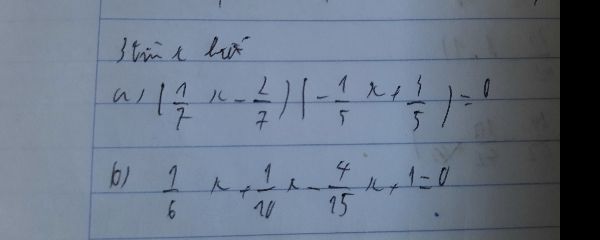 3 tìm x biết
a) (1/7 x - 2/7) (-1/5 x + 3/5) = 0
b) 1/6 x + 1/10 x - 4/15 x + 1 = 0